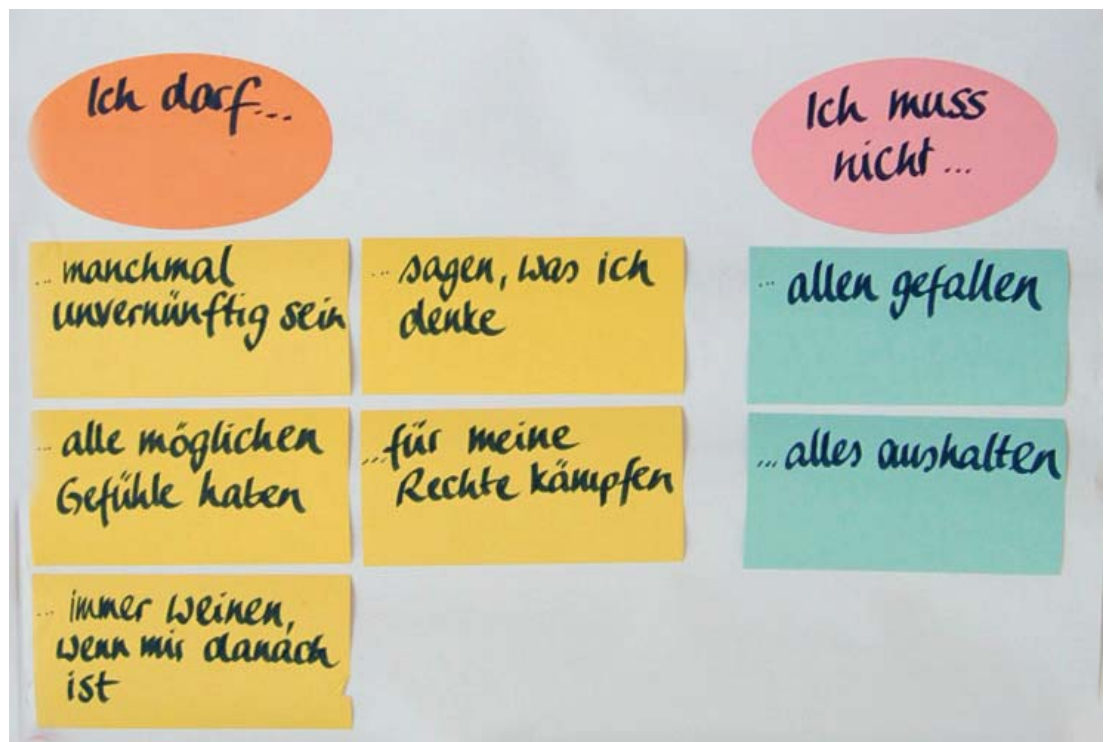 Ich darf...
... manchmal
unvernünftig sein
... sagen, was ich
denke
... alle möglichen
Gefühle haben
...für meine
Rechte kämpfen
... immer weinen,
wenn mir danach
ist
Ich muss
nicht...
... allen gefallen
...alles aushalten